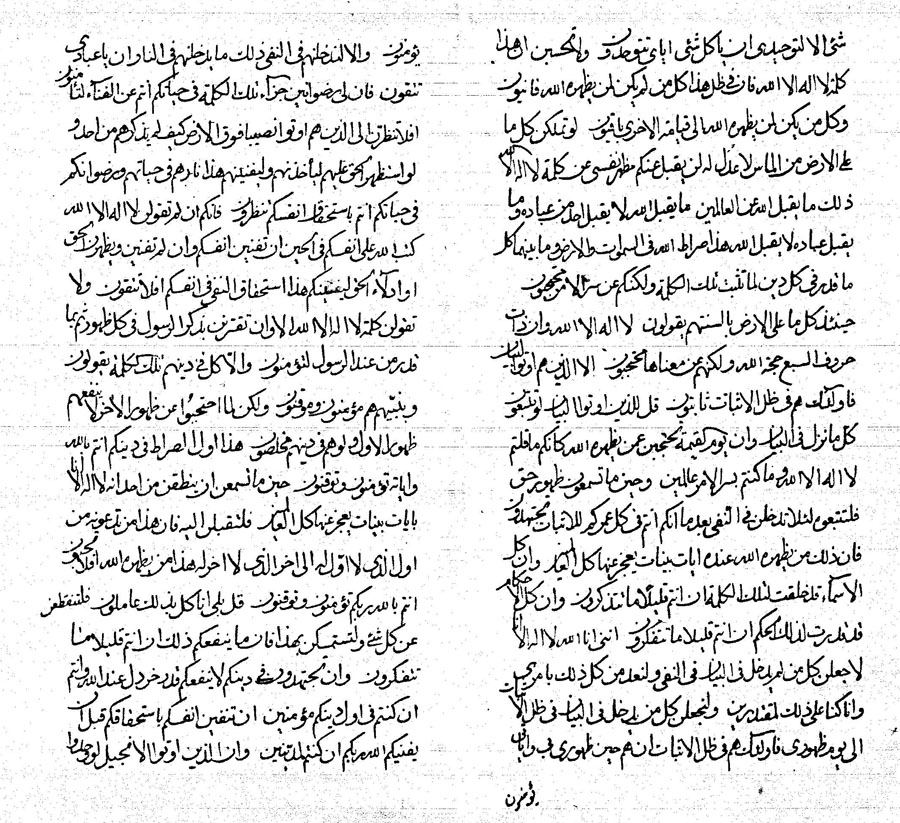 شئ الا لتوحيدى ان يا كل شئ اياى تتوحدون ولا تحسبن ان هذا
كلمة لا اله الا الله فان فى ظل هذا كل من لم يكن لمن يظهره الله فانيون
وكل من يكن لمن يظهره الله الى قيامة الاخرى باقيون لو تملكن كل ما
على الارض من الماس لا عدل له لن يقبل عنكم مظهر نفسى عن كلمة لا اله الا الله
ذلك ما يقبل الله عن العالمين ما يقبل الله لا يقبل احد من عباده وما
يقبل عباده لا يقبل الله هذا صراط الله فى السموات والارض وما بينهما كل
ما قدر فى كل دين لما تثبت تلك الكلمة ولكنكم عن سر الامر محتجبون
حينئذ كل ما على الارض بالسنتهم يقولون لا اله الا الله وان ذات
حروف السبع حجة الله ولكنهم عن معناها محتجبون الا الذين هم اوتوا البيان
فاولئك هم فى ظل الاثبات ثابتون قل للذين اوتوا البيان لو تتبعون
كل ما نزل فى البيان وان يوم القيمة تحتجبن عمن يظهره الله كانكم ما قلتم
لا اله الا الله وما كنتم بسر الامر عالمين وحين ما تسمعون ظهور حق
فلتتبعوه لئلا تدخلن فى النفى بعد ما انكم انتم فى كل عمركم للاثبات مجتهدون
فان ذلك من يظهره الله عنده ايات بينات يعجز عنها كل العالمين وان كل
الاسماء قد خلقت لتلك الكلمة ان انتم قليلا ما تتذكرون وان كل الاحكام
قد قدرت لذلك الحكم ان انتم قليلا ما تتفكرون اننى انا الله لا اله الا انا
لاجعلن كل من لم يدخل فى البيان فى النفى ولنعدمن كل ذلك بامرى
وانا كنا على ذلك لمقتدرين ولنجعلن كل من يدخل فى البيان فى ظل الاثبات
الى يوم ظهورى فاولئك هم فى ظل الاثبات ان هم حين ظهورى بى واياتى
يؤمنون
يؤمنون والا لندخلنهم فى النفى ذلك ما يدخلنهم فى النار ان يا عبادى
تتقون فان لى رضوانين جزاء تلك الكلمة فى حياتكم انتم عن الفناء لتأمنون
افلا تنظرن الى الذين هم اوتوا نصيبا فوق الارض كيف لم يذكرهم من احد و
لو استظهر الحق عليهم ليأخذنهم وليفنينهم هذا نارهم فى حياتهم ورضوانكم
فى حياتكم انتم باستحقاق انفسكم تنظرون فانكم ان لم تقولن لا اله الا الله
كتب الله على انفسكم فى الحين ان تفنين انفسكم وان لم تفنين ويظهرن الحق
او ادلاء الحق ليفنينكم هذا استحقاق النفى فى انفسكم افلا تتقون ولا
تقولن كلمة لا اله الا الله الا وان تقترنن بذكر الرسول فى كل ظهور ثم بما
قدر من عند الرسول لتؤمنون والا كل فى دينهم تلك الكلمة يقولون
وبنبيهم هم مؤمنون وموقنون ولكن لما احتجبوا عن ظهور الاخر لا ينفعهم
ظهور الاول ولو هم فى دينهم مخلصون هذا اول الصراط فى دينكم انتم بالله
واياته تؤمنون وتوقنون حين ما تسمعن ان ينطقن من احد انه لا اله الا انا
بايات بينات يعجز عنها كل العالمين فلتقبلن اليه فان هذا من تدعونه من
اول الذى لا اول له الى اخر الذى لا اخر له هذا من يظهره الله افلا تحبون
انتم بالله ربكم تؤمنون وتوقنون قل بلى انا كل بذلك عاملون فلتنقطعن
عن كل شئ ولتستمسكن بهذا فان ما ينفعكم ذلك ان انتم قليلا ما
تتفكرون وان تجتهدون فى دينكم لا ينفعكم قدر خردل عند الله وانتم
ان كنتم فى اول دينكم مؤمنين ان تنفين انفسكم باستحقاقكم قبل ان
يفنينكم الله ربكم ان كنتم لمدينين وان الذين اوتوا الانجيل لو وحدوا